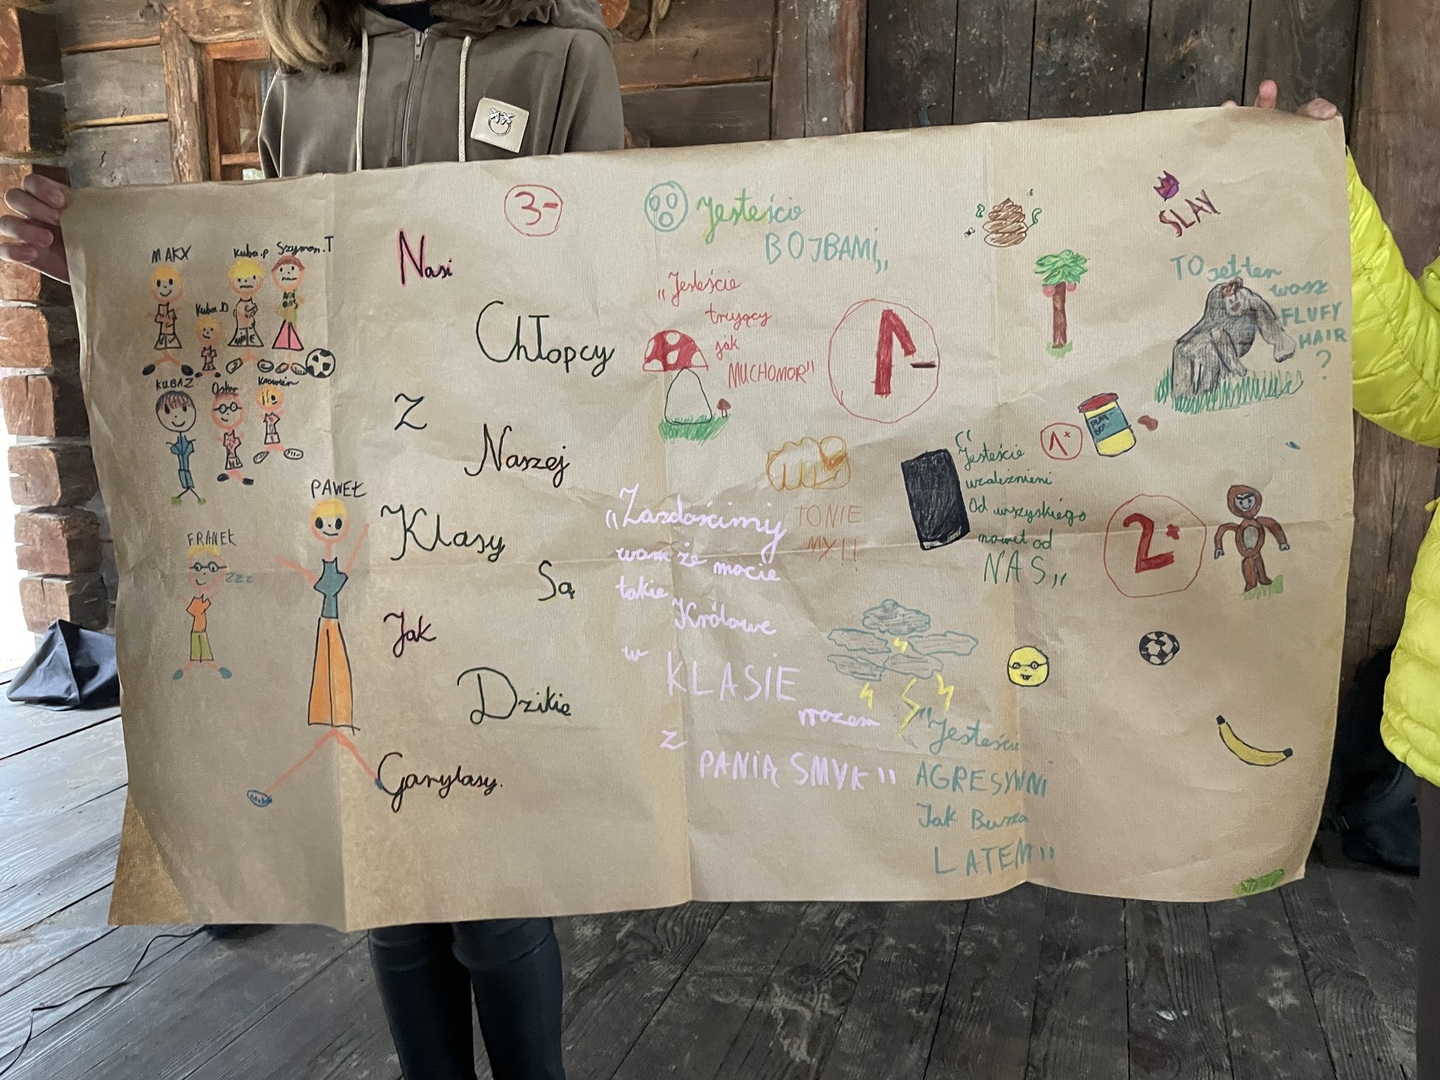 MAKX
Kuba.p
Szymon.T
Kuba.D
KUBAZ
Oskar
PAWEŁ
FRANEK
zzz
Nasi
Chłopcy
Z
Naszej
Klasy
Są
Jak
Dzikie
Gorylasy.
3-
Jesteście
BOJBAMI,,
,,Jesteście
trujący
jak
MUCHOMOR"
1-
TO NIE
MY!!
,,Zazdościmy
wam że macie
takie
Królowe
w
KLASIE
wrazem
z
PANIĄ SMYK"
Jesteście
uzależnieni
Od wszyskiego
nawet od
NAS,,
1+
2+
"Jesteście
AGRESYWNI
Jak Burza
LATEM"
SLAY
TO jest ten
wasz
FLUFY
HAIR
?